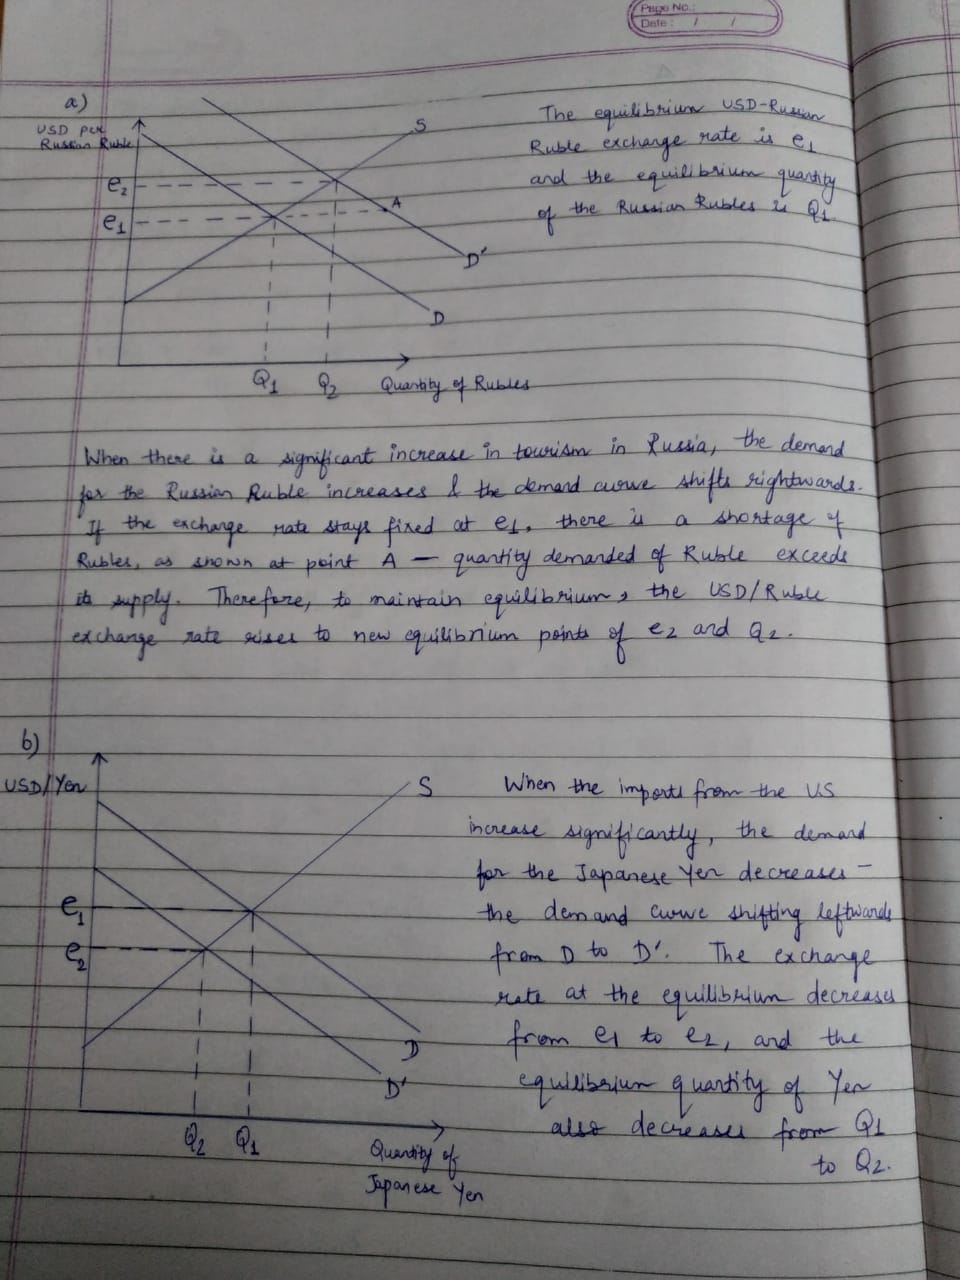 Page No.:
Date: / /
a)
USD per
Russian Ruble
S
e2
e1
A
D'
D
Q1 Q2 Quantity of Rubles
The equilibrium USD-Russian
Ruble exchange rate is e1
and the equilibrium quantity
of the Russian Rubles is Q1
When there is a significant increase in tourism in Russia, the demand
for the Russian Ruble increases & the demand curve shifts rightwards.
If the exchange rate stays fixed at e1, there is a shortage of
Rubles, as shown at point A — quantity demanded of Ruble exceeds
its supply. Therefore, to maintain equilibrium, the USD/Ruble
exchange rate rises to new equilibrium points of e2 and Q2.
b)
USD/Yen
S
e1
e2
D
D'
Q2 Q1
Quantity of
Japanese Yen
When the imports from the US
increase significantly, the demand
for the Japanese Yen decreases –
the demand curve shifting leftwards
from D to D'. The exchange
rate at the equilibrium decreases
from e1 to e2, and the
equilibrium quantity of Yen
also decreases from Q1
to Q2.